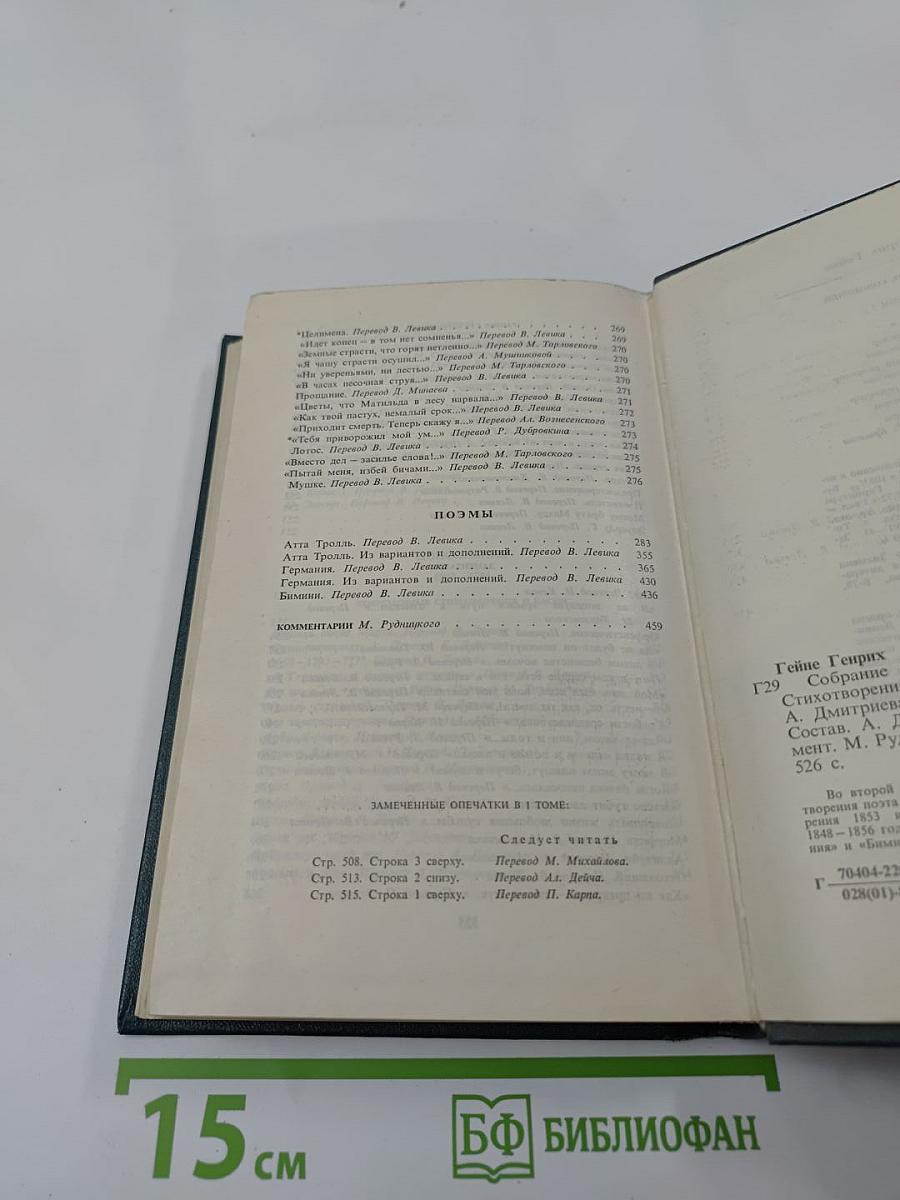 *Целимена. Перевод В. Левика . . . . . . . . . . . . . 269
«Идет конец – в том нет сомненья...» Перевод В. Левика . . . 269
«Земные страсти, что горят нетленно...» Перевод М. Тарловского 270
«Я чашу страсти осушил...» Перевод А. Мушниковой . . . . 270
«Ни увереньями, ни лестью...» Перевод М. Тарловского . . . 270
«В часах песочная струя...» Перевод В. Левика . . . . . . 270
Прощание. Перевод Д. Минаева . . . . . . . . . . . . 271
«Цветы, что Матильда в лесу нарвала...» Перевод В. Левика 271
«Как твой пастух, немалый срок...» Перевод В. Левика . . . 272
«Приходит смерть. Теперь скажу я...» Перевод Ал. Вознесенского 273
*«Тебя приворожил мой ум...» Перевод Р. Дубровкина . . . . 273
Лотос. Перевод В. Левика . . . . . . . . . . . . . . 274
«Вместо дел – засилье слова!..» Перевод М. Тарловского . . . 275
«Пытай меня, избей бичами...» Перевод В. Левика . . . . . 275
Мушке. Перевод В. Левика . . . . . . . . . . . . . . 276
ПОЭМЫ
Атта Тролль. Перевод В. Левика . . . . . . . . . . . 283
Атта Тролль. Из вариантов и дополнений. Перевод В. Левика 355
Германия. Перевод В. Левика . . . . . . . . . . . . . 365
Германия. Из вариантов и дополнений. Перевод В. Левика 430
Бимини. Перевод В. Левика . . . . . . . . . . . . . . 436
КОММЕНТАРИИ М. Рудницкого . . . . . . . . . . . . 459
ЗАМЕЧЕННЫЕ ОПЕЧАТКИ В 1 ТОМЕ:
Следует читать
Стр. 508. Строка 3 сверху. Перевод М. Михайлова.
Стр. 513. Строка 2 снизу. Перевод Ал. Дейча.
Стр. 515. Строка 1 сверху. Перевод П. Карпа.
Гейне Генрих
Г29 Собрание
Стихотворени
А. Дмитриева
Состав. А. Д
мент. М. Руд
526 с.
Во второй
творения поэта
рения 1853 и
1848–1856 год
ния» и «Бими
Г 70404-22
028(01)-
15 см
БФ БИБЛИОФАН